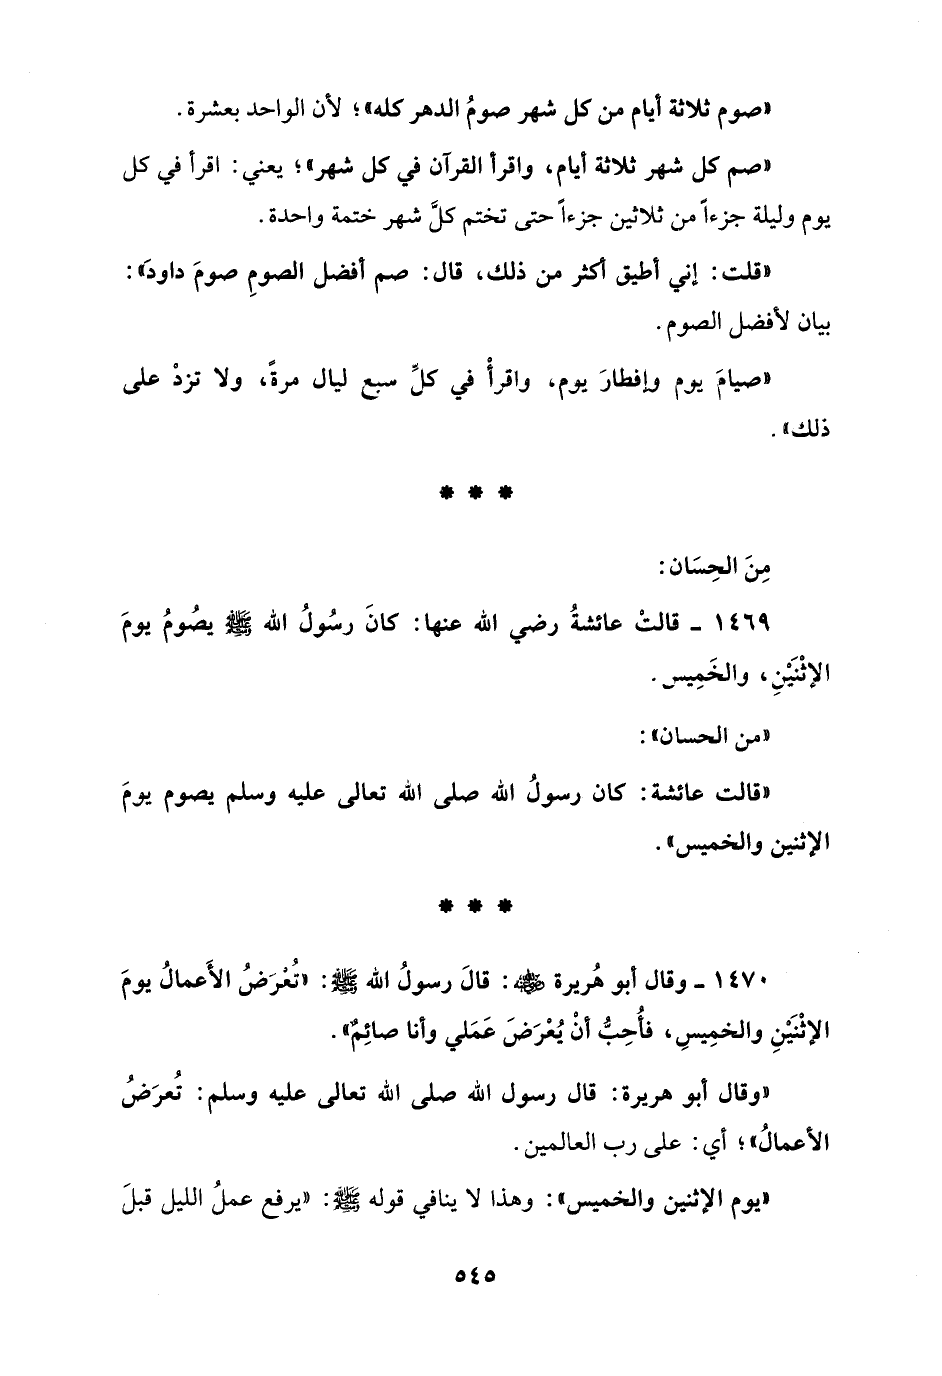 «صوم ثلاثة أيام من كل شهر صومُ الدهر كله»؛ لأن الواحد بعشرة.
«صم كل شهر ثلاثة أيام، واقرأ القرآن في كل شهر»؛ يعني: اقرأ في كل
يوم وليلة جزءاً من ثلاثين جزءاً حتى تختم كلَّ شهر ختمة واحدة.
«قلت: إني أطيق أكثر من ذلك، قال: صم أفضل الصومِ صومَ داودَ»:
بيان لأفضل الصوم.
«صيامَ يوم وإفطارَ يوم، واقرأْ في كلِّ سبع ليال مرةً، ولا تزدْ على
ذلك».
* * *
مِنَ الحِسَان:
١٤٦٩ - قالتْ عائشةُ رضي الله عنها: كانَ رسُولُ الله ﷺ يصُومُ يومَ
الإثْنَيْنِ، والخَمِيس.
«من الحسان»:
«قالت عائشة: كان رسولُ الله صلى الله تعالى عليه وسلم يصوم يومَ
الإثنين والخميس».
* * *
١٤٧٠ - وقال أبو هُريرة ﵁: قالَ رسولُ الله ﷺ: «تُعْرَضُ الأَعمالُ يومَ
الإثْنَيْنِ والخميسِ، فأُحِبُّ أنْ يُعْرَضَ عَمَلي وأنا صائِمٌ».
«وقال أبو هريرة: قال رسول الله صلى الله تعالى عليه وسلم: تُعرَضُ
الأعمالُ»؛ أي: على رب العالمين.
«يوم الإثنين والخميس»: وهذا لا ينافي قوله ﷺ: «يرفع عملُ الليل قبلَ
٥٤٥